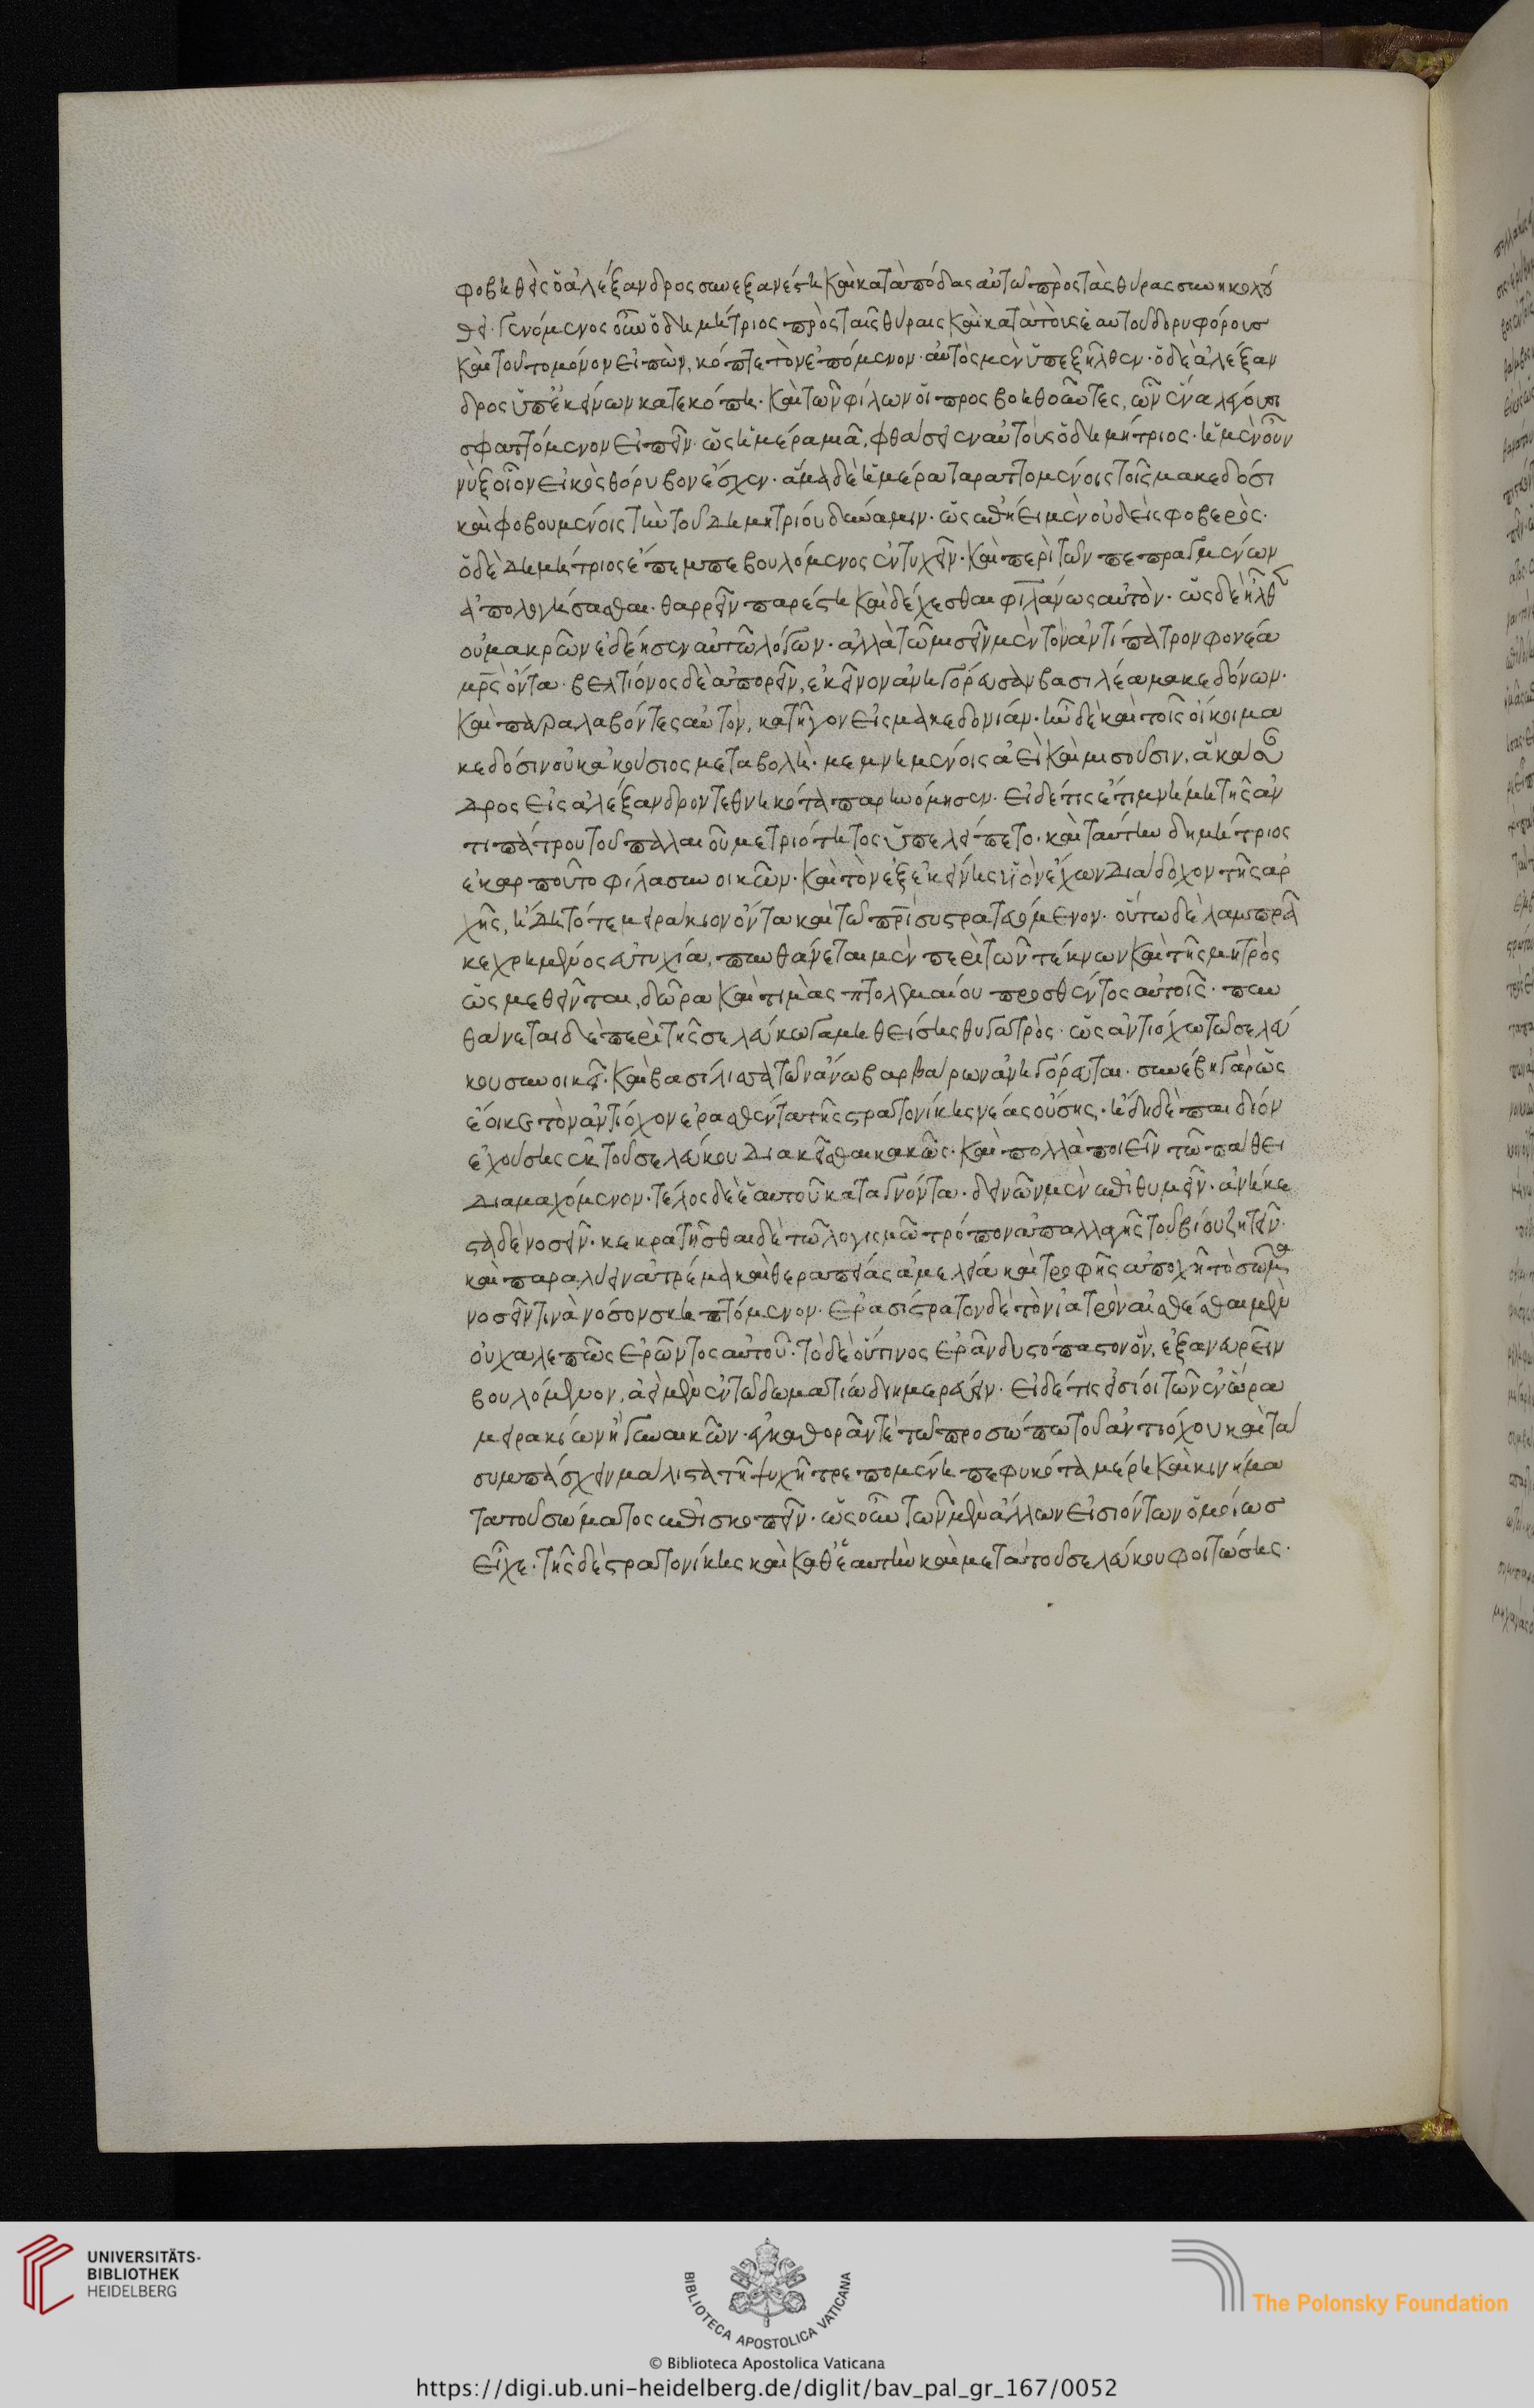 φοβηθεὶς ὁ ἀλέξανδρος συνεξανέστη καὶ κατὰ πόδας αὐτῶ πρὸς τὰς θύρας συνηκολού
θει· γενόμενος οὖν ὁ δημήτριος πρὸς ταῖς θύραις καὶ κατὰ τοὺς ἑαυτοῦ δορυφόρουσ
καὶ τοῦτο μόνον εἰπὼν, κόπτε τὸν ἑπόμενον· αὐτὸς μὲν ὑπεξῆλθεν· ὁ δὲ ἀλέξαν
δρος ὑπ' ἐκείνων κατεκόπη· καὶ τῶν φίλων οἱ προσβοηθοῦντες, ὧν ἕνα λέγουσι
σφαττόμενον εἰπεῖν· ὡς ἡμέρα μιᾶ, φθάσειεν αὐτοὺς ὁ δημήτριος· ἡ μὲν οὖν
νὺξ οἷον εἰκὸς θόρυβον ἔσχεν· ἅμα δὲ ἡμέρα ταραττομένοις τοῖς μακεδόσι
καὶ φοβουμένοις τὴν τοῦ δημητρίου δύναμιν· ὡς ἐπήει μὲν οὐδεὶς φοβερὸς·
ὁ δὲ δημήτριος ἔπεμπε βουλόμενος ἐντυχεῖν· καὶ περὶ τῶν πεπραγμένων
ἀπολογήσασθαι· θαρρεῖν παρέστη καὶ δέχεσθαι φιλανως αὐτὸν· ὡς δὲ ἦλθ
οὐ μακρῶν ἐδέησεν αὐτῶ λόγων· ἀλλὰ τῶ μισεῖν μὲν τὸν ἀντίπατρον φονέα
μρς ὄντα· βελτίονος δὲ ἀπορεῖν, ἐκεῖνον ἀνηγόρευσαν βασιλέα μακεδόνων·
καὶ παραλαβόντες αὐτὸν, κατῆγον εἰς μακεδονίαν· ἦν δὲ καὶ τοῖς οἴκοι μα
κεδόσιν οὐκ ἀκούσιος μεταβολὴ· μεμνημένοις ἀεὶ καὶ μισοῦσιν, ἃ κάσ
δρος εἰς ἀλέξανδρον τεθνηκότα παρηνόμησεν· εἰ δέ τις ἔτι μνήμη τῆς ἀν
τιπάτρου τοῦ παλαιοῦ μετριότητος ὑπελείπετο· καὶ ταύτην δημήτριος
ἐκαρποῦτο φίλα συνοικῶν· καὶ τὸν ἐξ ἐκείνης υἱὸν ἔχων διάδοχον τῆς ἀρ
χῆς, ἤδη τότε μειράκιον ὄντα καὶ τῶ πρὶ συστρατευόμενον· οὕτω δὲ λαμπρᾶ
κεχρημένος εὐτυχία, πυνθάνεται μὲν περὶ τῶν τέκνων καὶ τῆς μητρὸς
ὡς μεθεῖνται, δῶρα καὶ τιμὰς πτολεμαίου προσθέντος αὐτοῖς· πυν
θάνεται δὲ περὶ τῆς σελεύκω γαμηθείσης θυγατρὸς· ὡς ἀντιόχω τῶ σελεύ
κου συνοικεῖ· καὶ βασίλισσα τῶν ἄνω βαρβάρων ἀνηγόρευται· συνέβη γὰρ ὡς
ἔοικε τὸν ἀντίοχον ἐρασθέντα τῆς στρατονίκης νέας οὔσης· ἤδη δὲ παιδίον
ἐχούσης ἐκ τοῦ σελεύκου διακεῖσθαι κακῶς· καὶ πολλὰ ποιεῖν τῶ πάθει
διαμαχόμενον· τέλος δὲ ἑαυτοῦ καταγνόντα· δεινῶν μὲν ἐπιθυμεῖν· ἀνήκε
στα δὲ νοσεῖν· κεκρατῆσθαι δὲ τῶ λογισμῶ τρόπον ἀπαλλαγῆς τοῦ βίου ζητεῖν·
καὶ παραλύειν ἀτρέμα καὶ θεραπείας ἀμελεία καὶ τροφῆς ἀποχῆ τὸ σῶμα
νοσεῖν τινὰ νόσον σκηπτόμενον· ἐρασίστρατον δὲ τὸν ἰατρὸν αἰσθέσθαι μὲν
οὐ χαλεπῶς ἐρῶντος αὐτοῦ· τὸ δὲ οὕτινος ἐρᾶν δυστόπαστον ὂν, ἐξανευρεῖν
βουλόμενον, ἀεὶ μὲν ἐν τῶ δωματίω διημερεύειν· εἰ δέ τις εἰσίοι τῶν ἐν ὥρα
μειρακίων ἢ γυναικῶν· ἐγκαθορᾶν τε τῶ προσώπω τοῦ ἀντιόχου καὶ τὰ
συμπάσχειν μάλιστα τῆ ψυχῆ τρεπομένη πεφυκότα μέρη καὶ κινήμα
τα τοῦ σώματος ἐπισκοπεῖν· ὡς οὖν τῶν μὲν ἄλλων εἰσιόντων ὁμοίωσ
εἶχε· τῆς δὲ στρατονίκης καὶ καθ' ἑαυτὴν καὶ μετὰ τοῦ σελεύκου φοιτώσης·
UNIVERSITÄTS-
BIBLIOTHEK
HEIDELBERG
BIBLIOTECA APOSTOLICA VATICANA
The Polonsky Foundation
© Biblioteca Apostolica Vaticana
https://digi.ub.uni-heidelberg.de/diglit/bav_pal_gr_167/0052